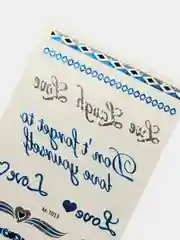 Live Laugh Love
Don't forget to
love yourself
Love
Love